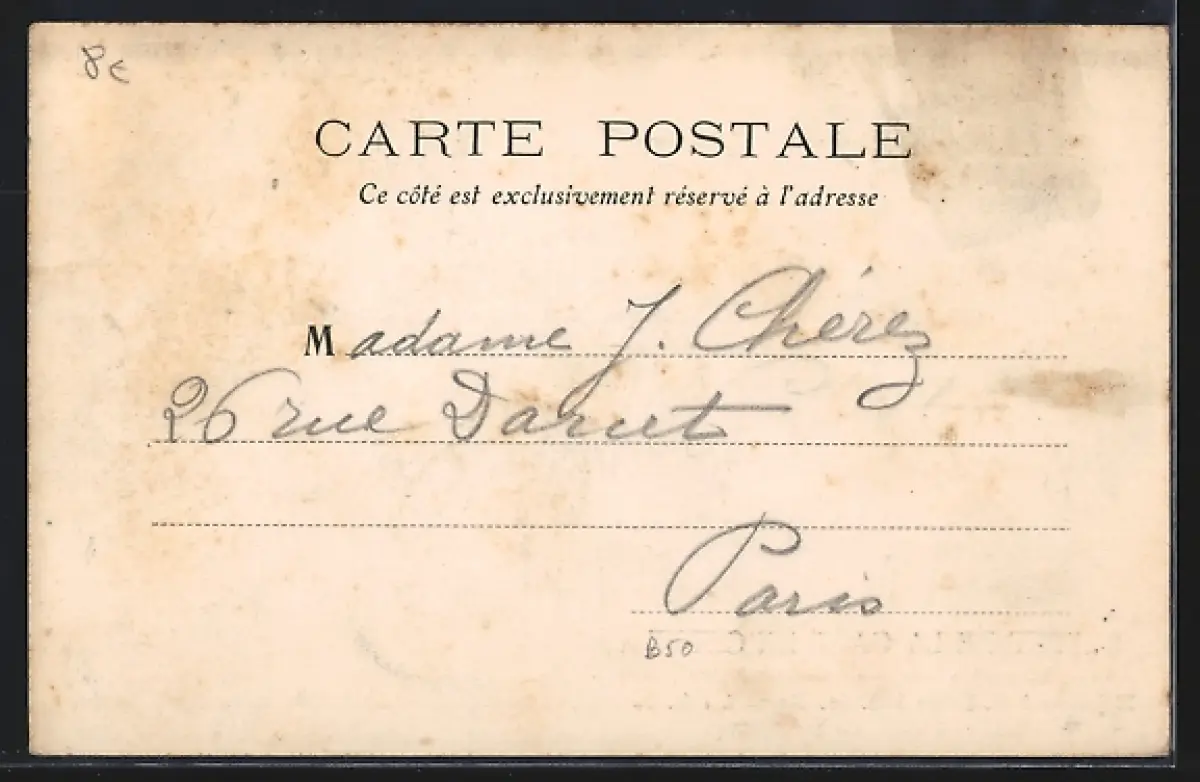 8€
CARTE POSTALE
Ce côté est exclusivement réservé à l'adresse
Madame J. Chérez
26 rue Darcet
Paris
B50